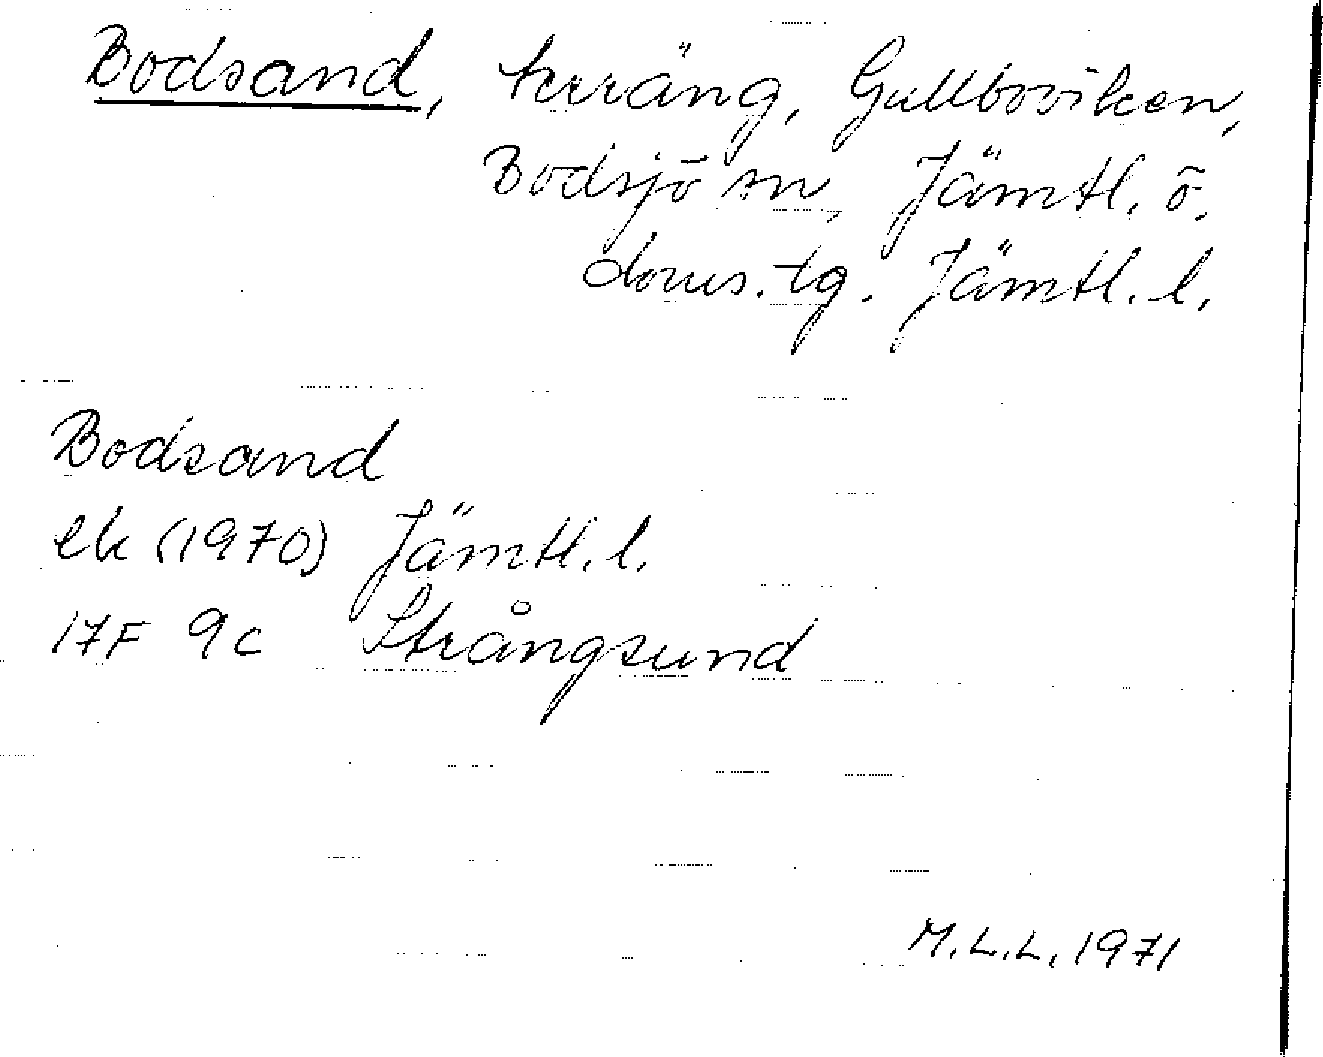 Bodsand, terräng, Gullboviken,
Bodsjö sn, Jämtl. ö.
doms.tg. Jämtl. l.
Bodsand
ek (1970) Jämtl. l.
17F 9c Strångsund
M.L.L. 1971